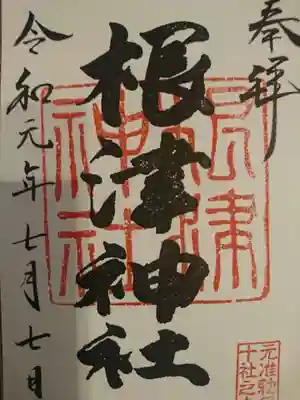 奉拝
根津神社
根津
神社
令和元年七月七日
元准勅
十社之